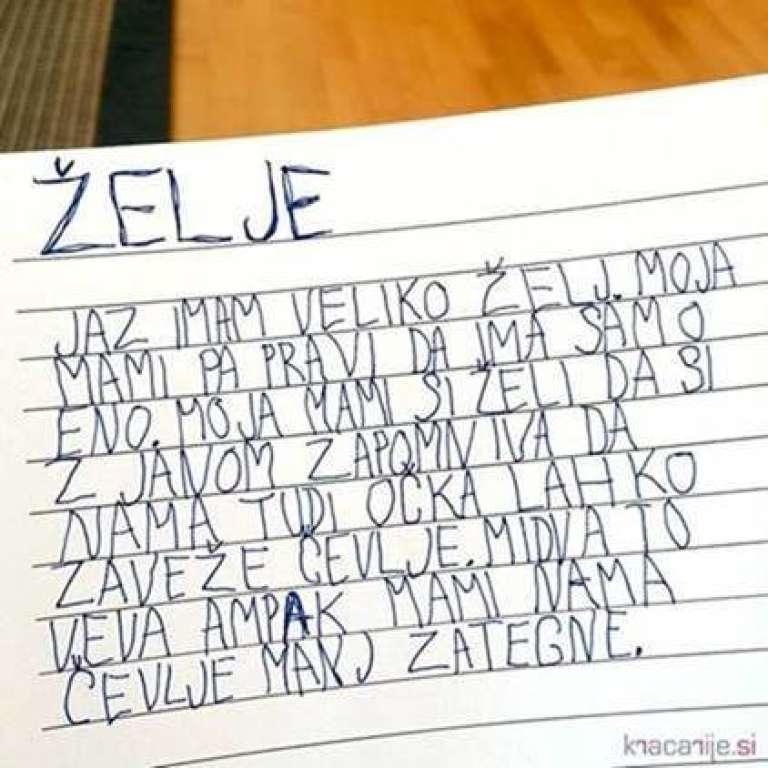 ŽELJE
JAZ IMAM VELIKO ŽELJ. MOJA
MAMI PA PRAVI DA IMA SAMO
ENO. MOJA MAMI SI ŽELI DA SI
Z JANOM ZAPOMNIVA DA
NAMA TUDI OČKA LAHKO
ZAVEŽE ČEVLJE. MIDVA TO
VEVA AMPAK MAMI NAMA
ČEVLJE MANJ ZATEGNE.
knacarije.si